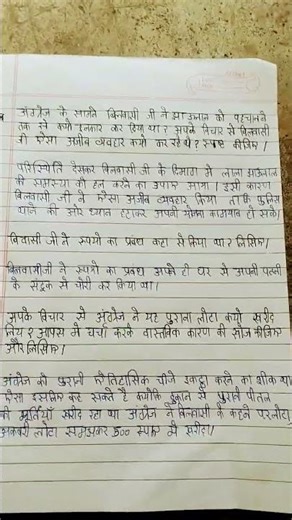 अंग्रेज के सामने बिलवासी जी ने झाऊलाल को पहचानने
तक से क्यों इनकार कर दिया था? आपके विचार से बिलवासी
जी ऐसा अजीब व्यवहार क्यों कर रहे थे? स्पष्ट कीजिए।
परिस्थिति देखकर बिलवासी जी के दिमाग में लाला झाऊलाल
की समस्या को हल करने का उपाय आया। इसी कारण
बिलवासी जी ने ऐसा अजीब व्यवहार किया ताकि पुलिस
थाने की ओर ध्यान हटाकर अपनी योजना कामयाब हो सके।
बिलवासी जी ने रुपयों का प्रबंध कहाँ से किया था? लिखिए।
बिलवासीजी ने रुपयों का प्रबंध अपने ही घर से अपनी पत्नी
के संदूक से चोरी कर किया था।
आपके विचार से अंग्रेज ने यह पुराना लोटा क्यों खरीद
लिया? आपस में चर्चा करके वास्तविक कारण की खोज कीजिए
और लिखिए।
अंग्रेज को पुरानी ऐतिहासिक चीजें इकट्ठा करने का शौक था
ऐसा इसलिए कह सकते हैं क्योंकि दुकान से पुरानी पीतल
की मूर्तियाँ खरीद रहा था अंग्रेज ने बिलवासी के कहने पर लोटा
अकबरी लोटा समझकर 500 रुपए में खरीदा।